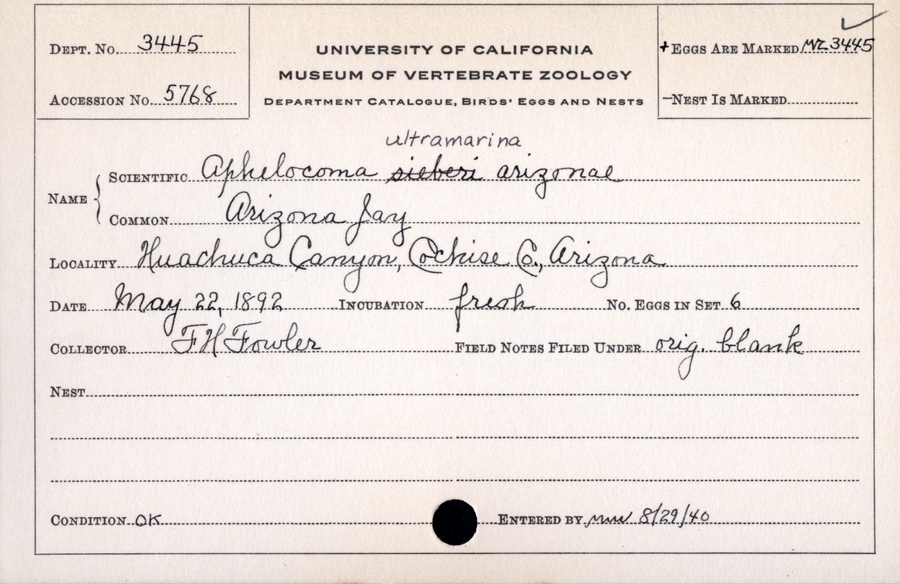 DEPT. NO. 3445
ACCESSION NO. 5768
UNIVERSITY OF CALIFORNIA
MUSEUM OF VERTEBRATE ZOOLOGY
DEPARTMENT CATALOGUE, BIRDS' EGGS AND NESTS
+EGGS ARE MARKED MVZ 3445
—NEST IS MARKED
ultramarina
NAME { SCIENTIFIC Aphelocoma sieberi arizonae
COMMON Arizona Jay
LOCALITY Huachuca Canyon, Cochise Co., Arizona
DATE May 22, 1892 INCUBATION fresh NO. EGGS IN SET 6
COLLECTOR FH Fowler FIELD NOTES FILED UNDER orig. blank
NEST
CONDITION OK ENTERED BY 8/29/40